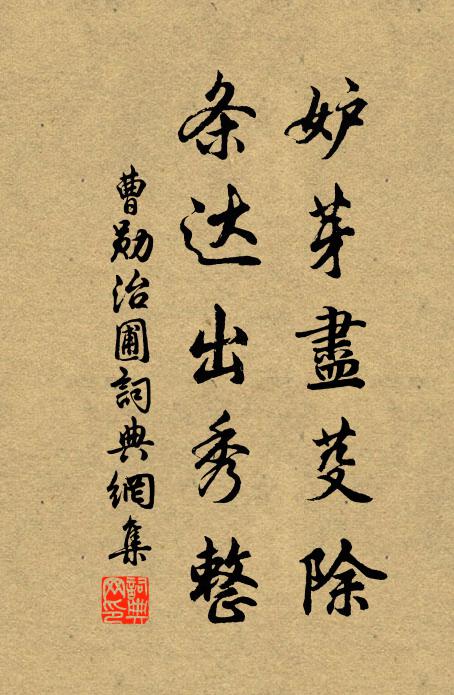 妒芽盡芟除
条达出秀整
曹勋治圃詞典網集
詞典网印